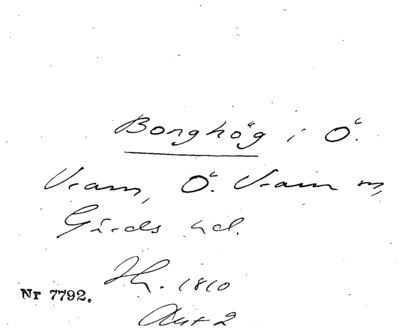 Bonghög i Ö.
Vram, Ö. Vram sn,
Gärds hd.
Jh. 1810
Nr 7792.
Akt 2